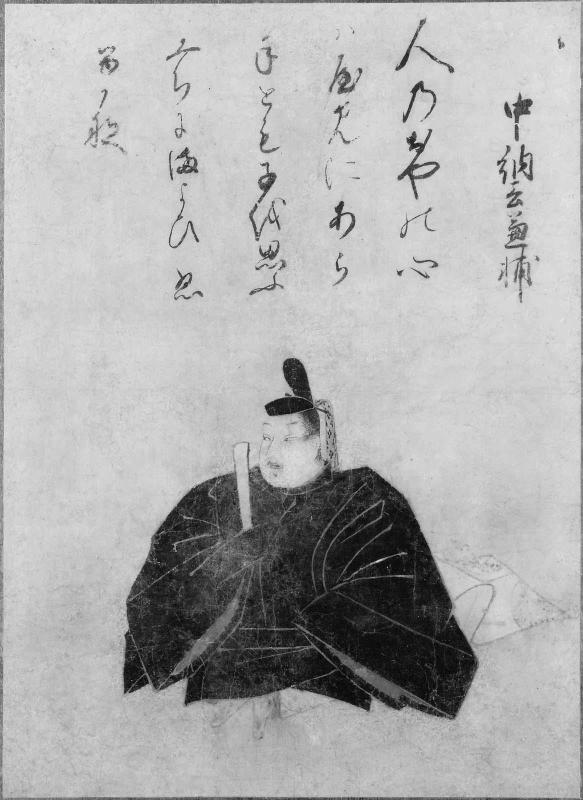 中納言兼輔
人乃おやの心
ハ屋みにあら
年とも子越思ふ
みちに満よひぬ
るかな